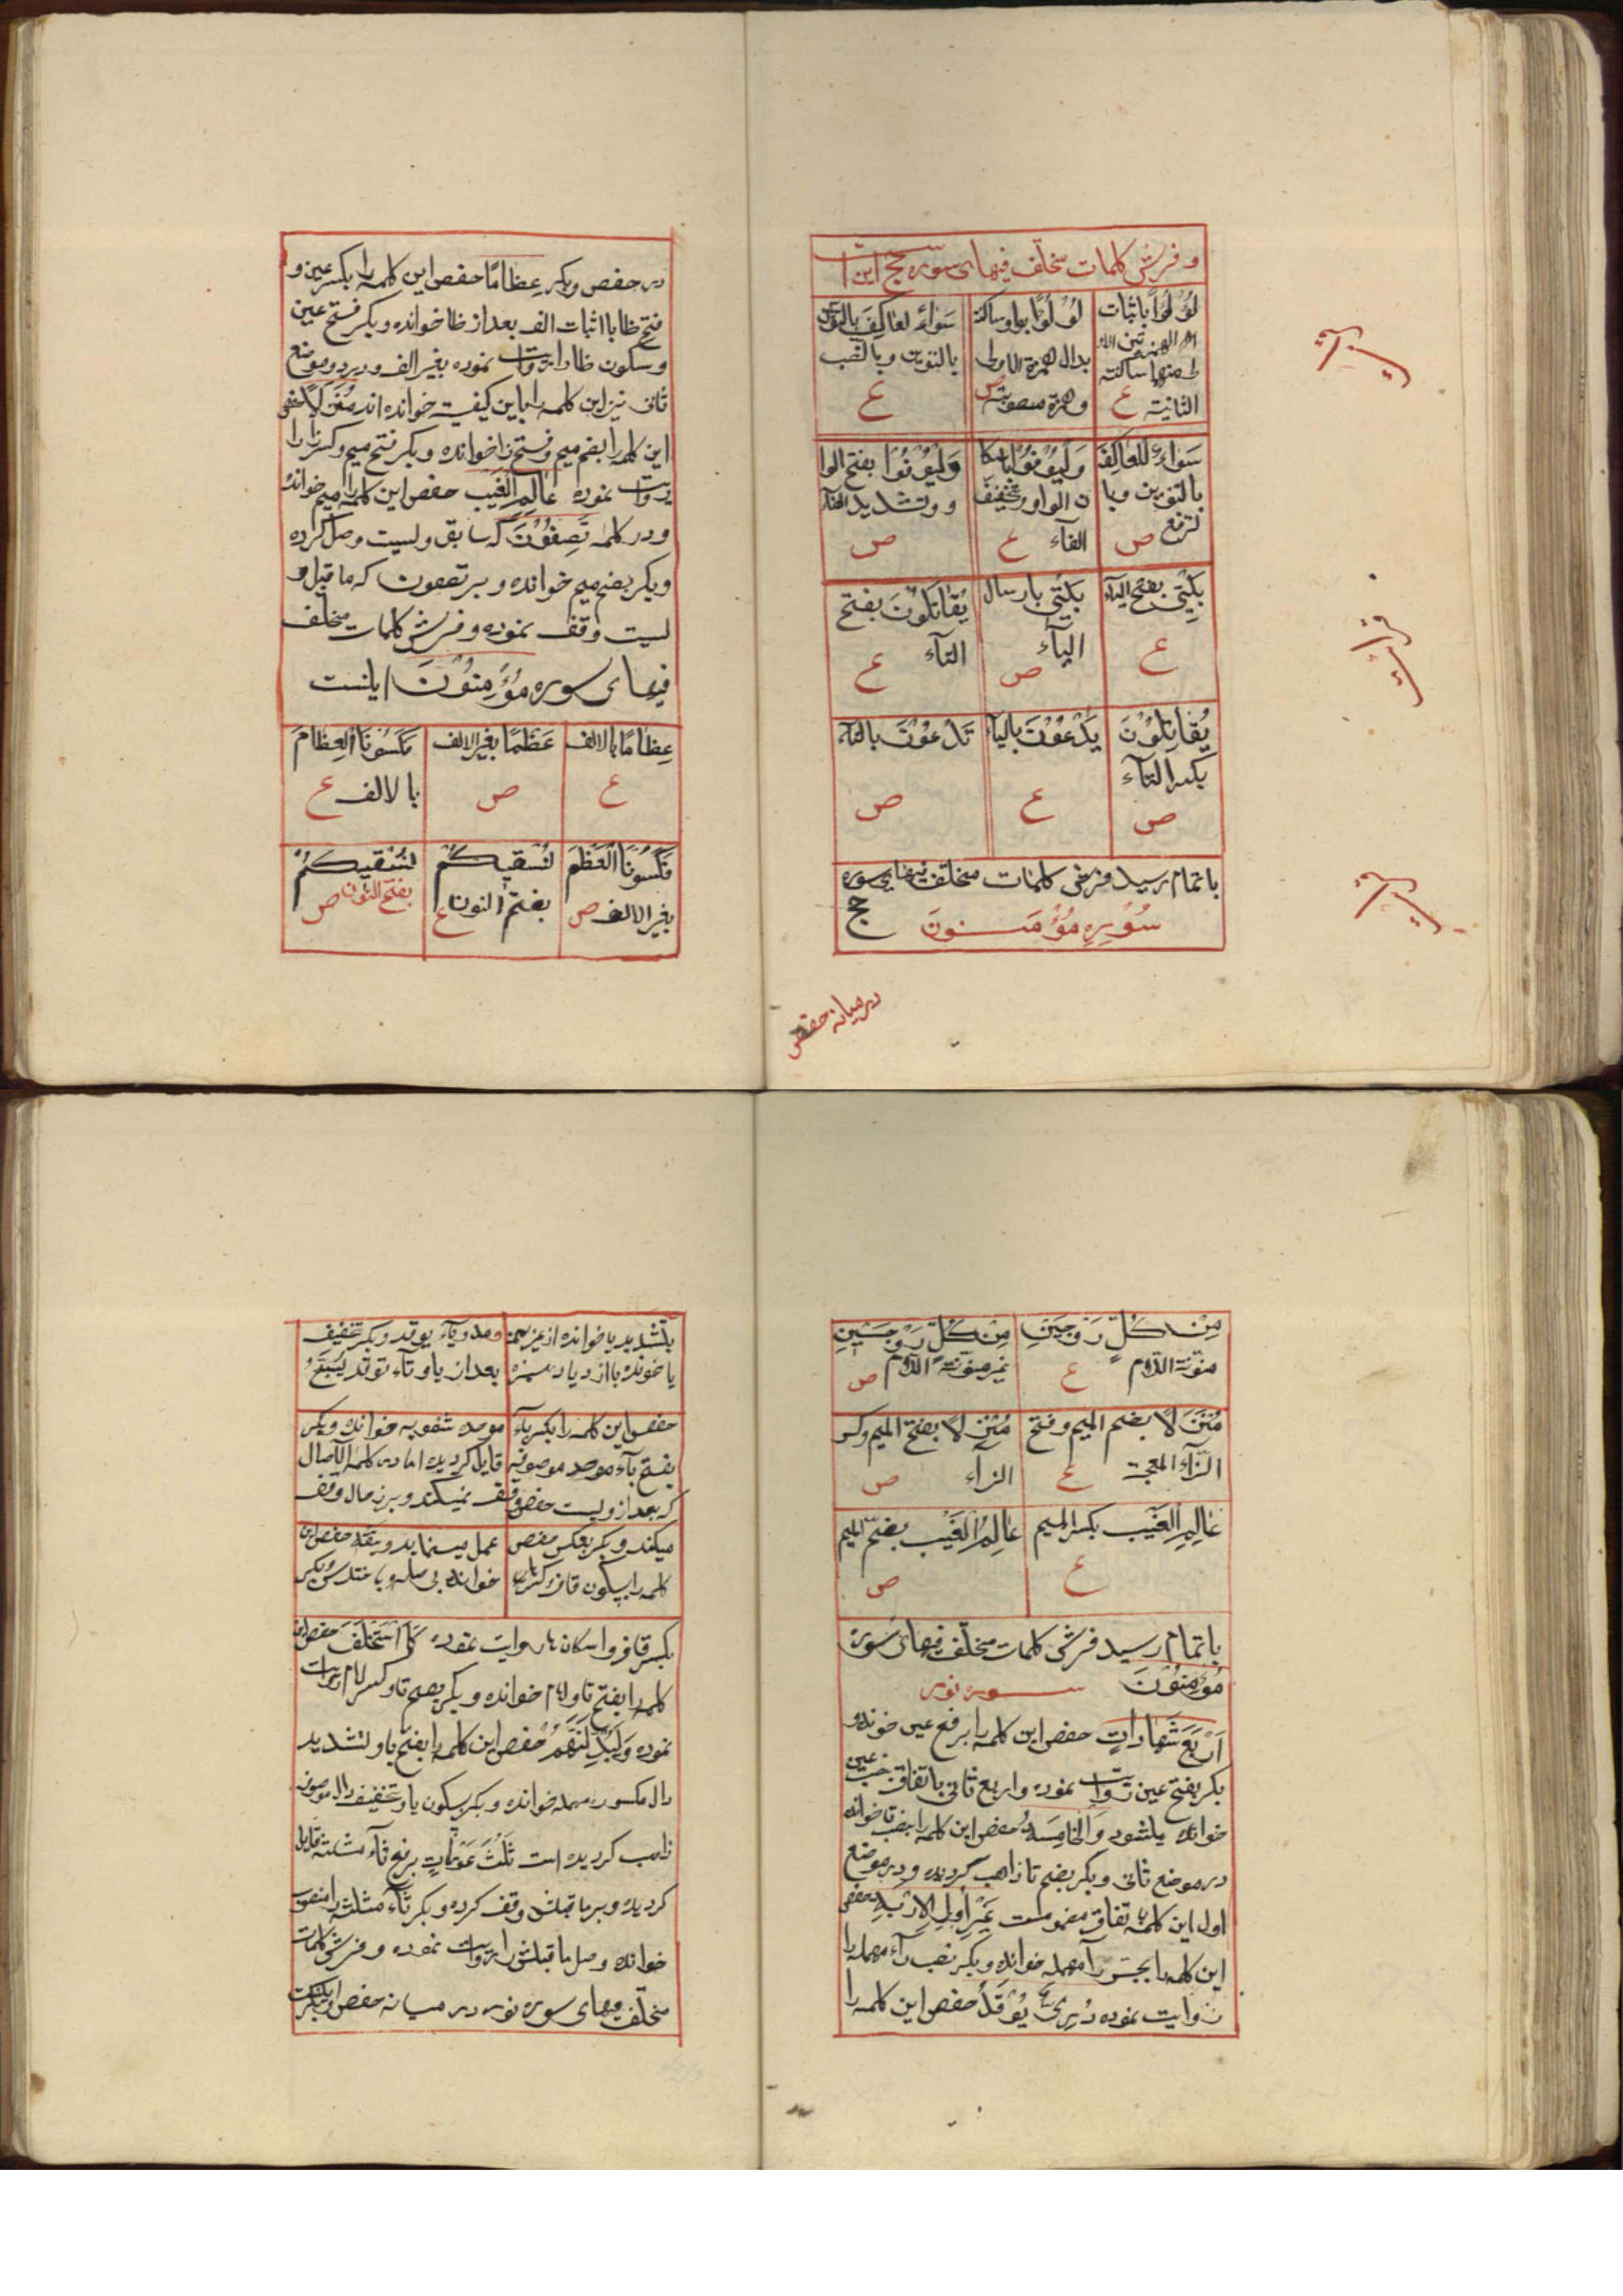 و فرش کلمات مختلف فیهای سوره حج این است
لُؤْلُؤًا باثبات
الهمزتین الاو
لی منهما ساکنته
الثانیته ع
لُوْلُؤًا بواو ساکنة
بدال همزة الاولی
و همزة منصوبته ص
سَوَآءً العَاکِفَ
بالتنوین و بالنصب
ع
سَوَاءٌ للعَاکِفَ
بالتنوین و با
لرفع ص
وَلْیُوْفُوْا باسکا
ن الواو و تخفیف
الفاء ع
وَلْیُوَفُّوْا بفتح الوا
و و تشدید الفاء
ص
بَیْتِیَ بفتح الیاء
ع
بَیْتِیْ بارسال
الیآء
ص
یُقَاتَلُوْنَ بفتح
التآء
ع
یُقَاتِلُوْنَ
بکسر التآء
ص
یَدْعُوْنَ بالیآء
ع
تَدْعُوْنَ بالتآء
ص
باتمام رسید فرش کلمات مختلف فیهای سوره
حج
سُوْرِهِ مُؤْمِنُونَ
در میانه حفص
در حفص و بکر عِظَامًا حفص این کلمه را بکسر عین و
فتح ظا با اثبات الف بعد از ظا خوانده و بکر فتح عین
و سکون ظا را روایت نموده بغیر الف و در دو موضع
ثانی نیز این کلمه را باین کیفیت خوانده اند مُنْزَلًا حفص
این کلمه را بضم میم و فتح زا خوانده و بکر فتح میم و کسر زا را
روایت نموده عَالِمِ الغَیْبِ حفص این کلمه را میم خوانده
و در کلمه تَصِفُوْنَ که سابق ولیست وصل کرده
و بکر بضم میم خوانده و بر تصفون که ما قبل او
لیست وقف نموده و فرش کلمات مختلف
فیهای سوره مُؤْمِنُوْنَ اینست
عِظَامًا بالالف
ع
عَظْمًا بغیر الالف
ص
فَکَسَوْنَا العِظَامَ
بالالف ع
فَکَسَوْنَا العَظْمَ
بغیر الالف ص
نُسْقِیکُمْ
بضم النون ع
نَسْقِیکُمْ
بفتح النون ص
مِنْ کُلٍّ زَوْجَیْنِ
منونة اللام ع
مِنْ کُلِّ زَوْجَیْنِ
غیر منونة اللام ص
مُنْزَلًا بضم المیم و فتح
الزاء المعجمة ع
مَنْزِلًا بفتح المیم و کسر
الزاء ص
عَالِمِ الغَیْبِ بکسر المیم
ع
عَالِمُ الغَیْبِ بضم المیم
ص
باتمام رسید فرش کلمات مختلف فیهای سوره
مُؤْمِنُوْنَ سوره نور
اَرْبَعَ شَهَادَاتٍ حفص این کلمه را برفع عین خوانده و
بکر بفتح عین روایت نموده و اربع ثانی باتفاق نصب عین
خوانده میشود وَالخَامِسَةُ حفص این کلمه را بنصب تا خوانده
در موضع ثانی و بکر بضم تا ذاهب گردیده و در موضع
اول این کلمه باتفاق مضمومست غَیْرِ اُولِی الاِرْبَةِ حفص
این کلمه را بجر رآء مهمله خوانده و بکر نصب رآء مهمله را
روایت نموده دُرِّیٌّ یُوْقَدُ حفص این کلمه را
بتشدید یا خوانده از غیر همزه و مد و یآء یوقد و بکر تخفیف
یا خوانده با ازدیاد همزه بعد از یا و تآء توقد یُسَبِّحُ
حفص این کلمه را بکسر بآء موحده شفویه خوانده و بکر
بفتح بآء موحد موصوفه قایل گردیده اما در کلمه الآصال
که بعد از ولیست حفص وقف نمیکند و بر رجال وقف
میکند و بکر بعکس حفص عمل مینماید ویتقه حفص این
کلمه را بسکون قاف و کسرها خوانده بی صله و باختلاس و بکر
بکسر قاف و اسکان ها روایت نموده کَمَا اسْتَخْلَفَ حفص این
کلمه را بفتح تا و لام خوانده و بکر بضم تا و کسر لام روایت
نموده وَلَیُبَدِّلَنَّهُمْ حفص این کلمه را بفتح با و تشدید
دال مکسوره مهمله خوانده و بکر بسکون با و تخفیف دال موصوفه
ذاهب گردیده است ثَلَثَ عَوْرَاتٍ برفع ثآء مثلثه قایل
گردیده و بر ما قبلش وقف کرده و بکر ثآء مثلثه را منصوب
خوانده وصل ما قبلش را روایت نموده و فرش کلمات
مختلف فیهای سوره نور در میانه حفص و بکر اینست